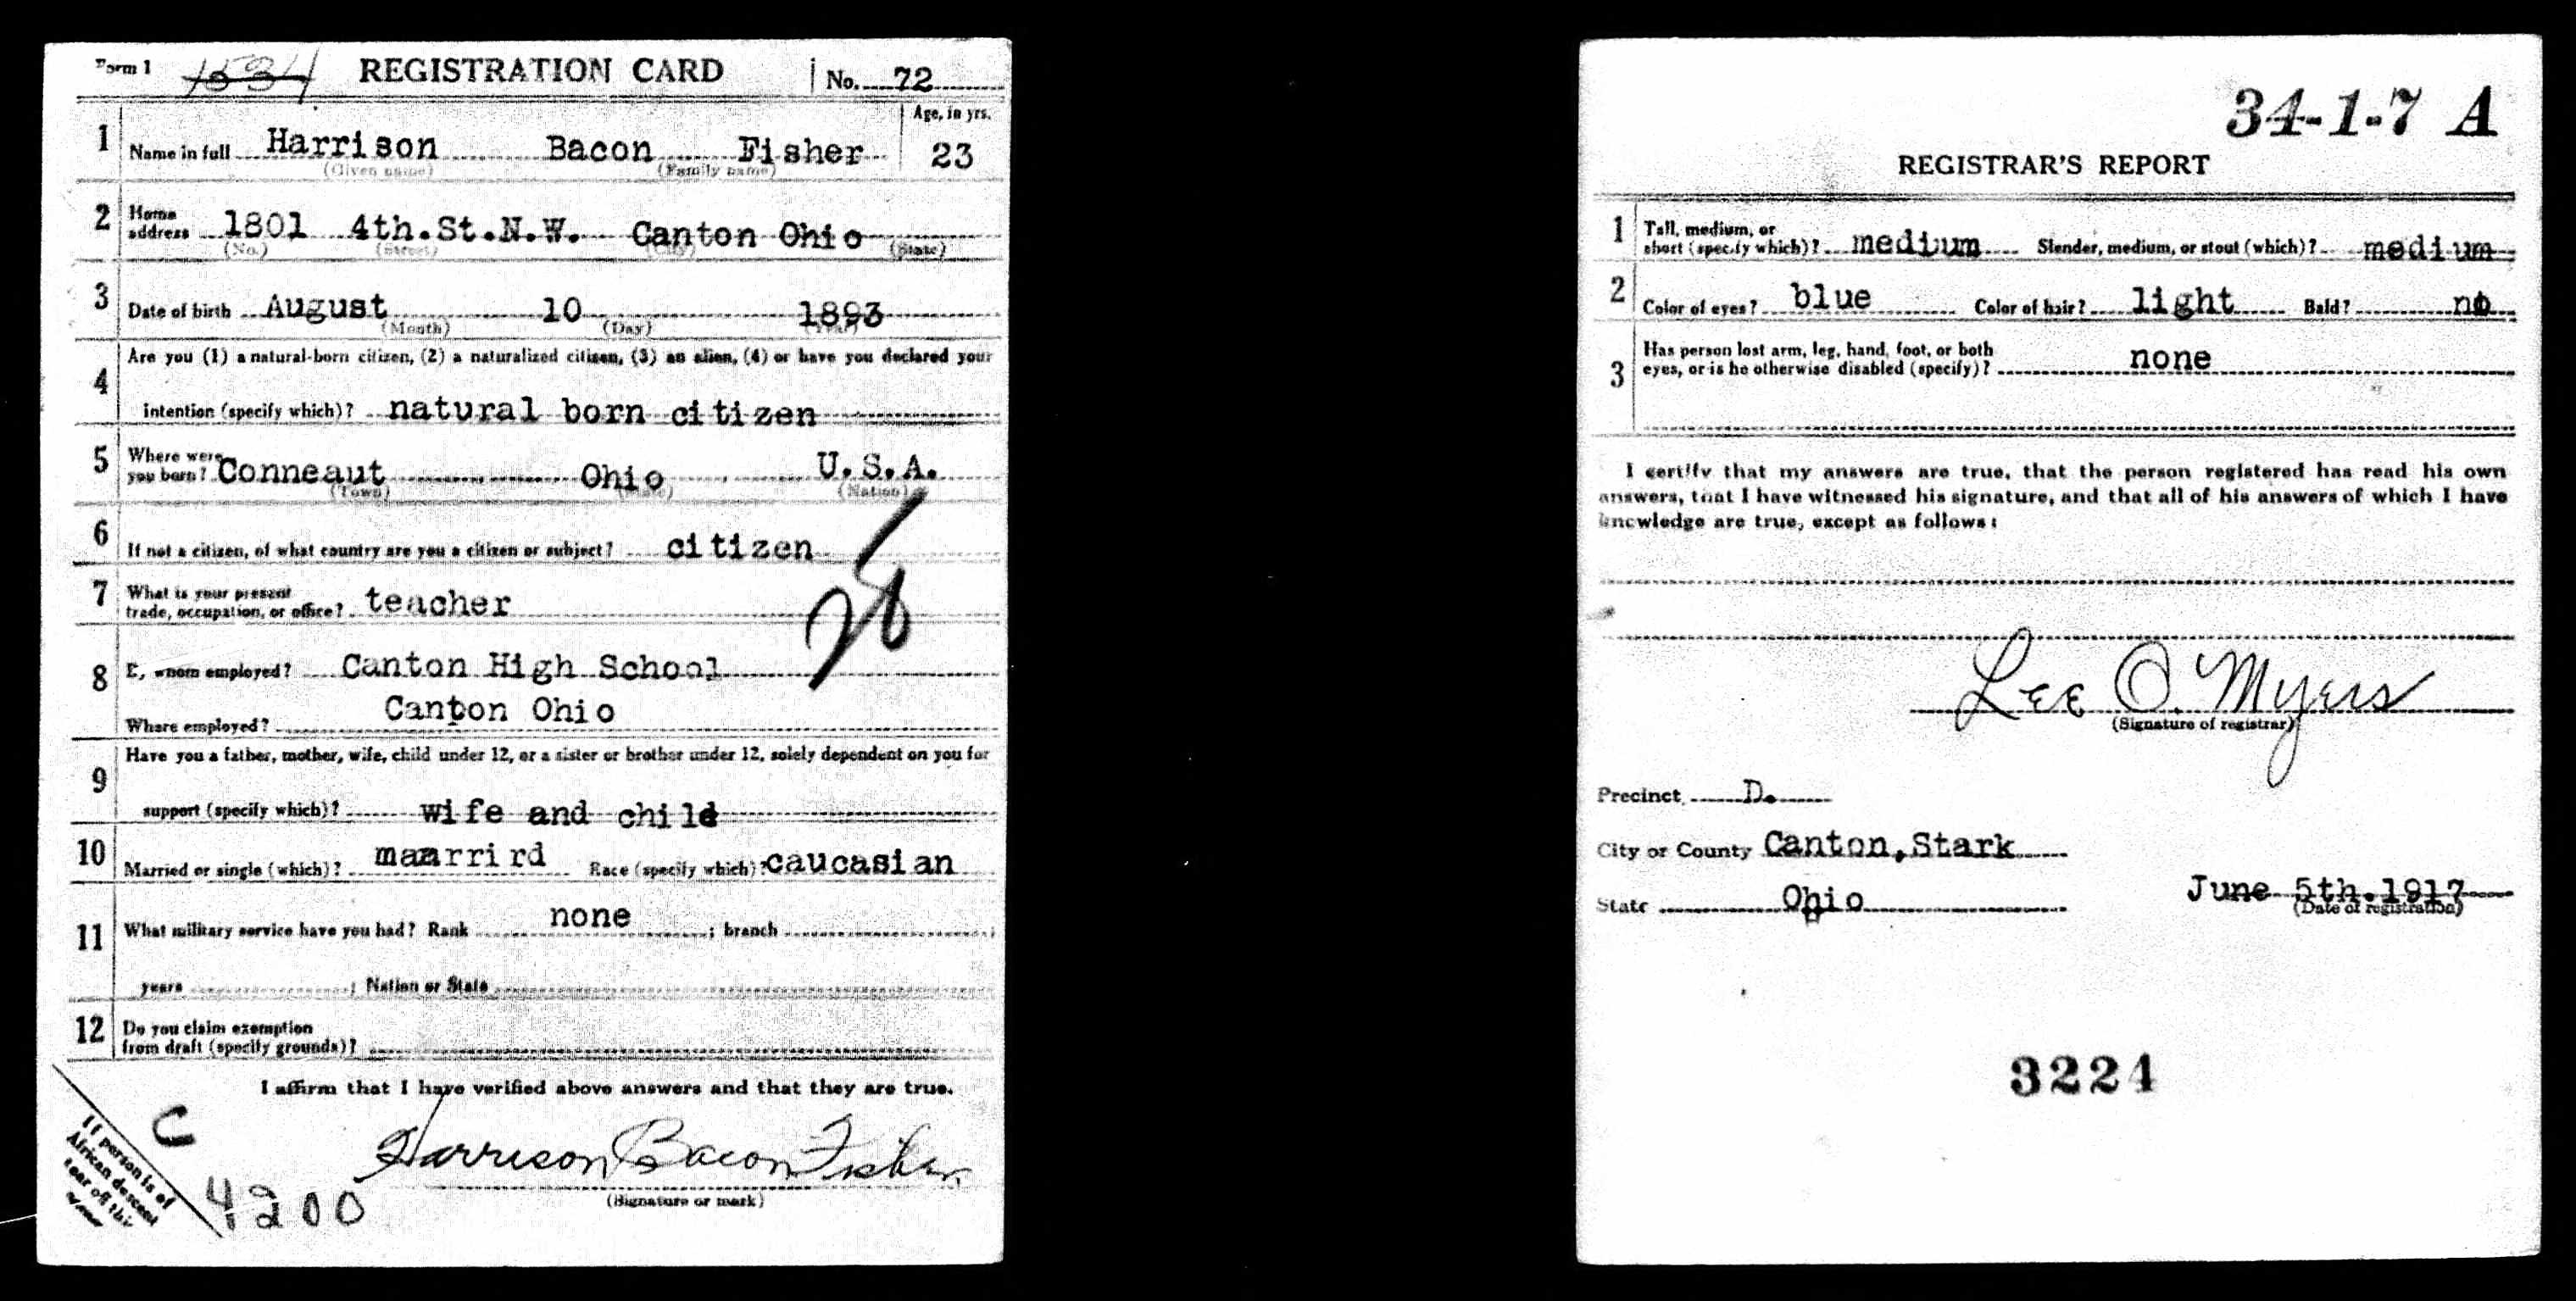 Form 1 1534 REGISTRATION CARD No. 72
Age, in yrs.
1 Name in full Harrison Bacon Fisher 23
(Given name) (Family name)
2 Home address 1801 4th.St.N.W. Canton Ohio
(No.) (Street) (City) (State)
3 Date of birth August 10 1893
(Month) (Day) (Year)
Are you (1) a natural-born citizen, (2) a naturalized citizen, (3) an alien, (4) or have you declared your
4 intention (specify which)? natural born citizen
5 Where were you born? Conneaut Ohio U.S.A.
(Town) (State) (Nation)
6 If not a citizen, of what country are you a citizen or subject? citizen
7 What is your present
trade, occupation, or office? teacher
8 By whom employed? Canton High School
Where employed? Canton Ohio
Have you a father, mother, wife, child under 12, or a sister or brother under 12, solely dependent on you for
9 support (specify which)? wife and child
10 Married or single (which)? maarrird Race (specify which)? caucasian
11 What military service have you had? Rank none ; branch ;
years ; Nation or State
12 Do you claim exemption
from draft (specify grounds)?
I affirm that I have verified above answers and that they are true.
Harrison Bacon Fisher
(Signature or mark)
If person is of
African descent
tear off this
corner
C
4200
34-1-7 A
REGISTRAR'S REPORT
1 Tall, medium, or
short (specify which)? medium Slender, medium, or stout (which)? medium
2 Color of eyes? blue Color of hair? light Bald? no
3 Has person lost arm, leg, hand, foot, or both
eyes, or is he otherwise disabled (specify)? none
I certify that my answers are true, that the person registered has read his own
answers, that I have witnessed his signature, and that all of his answers of which I have
knowledge are true, except as follows:
Lee O. Myers
(Signature of registrar)
Precinct D.
City or County Canton,Stark
State Ohio June 5th.1917
(Date of registration)
3224